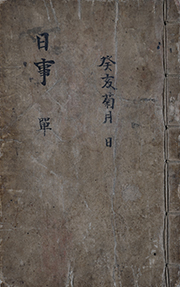 日事 單
癸亥菊月 日